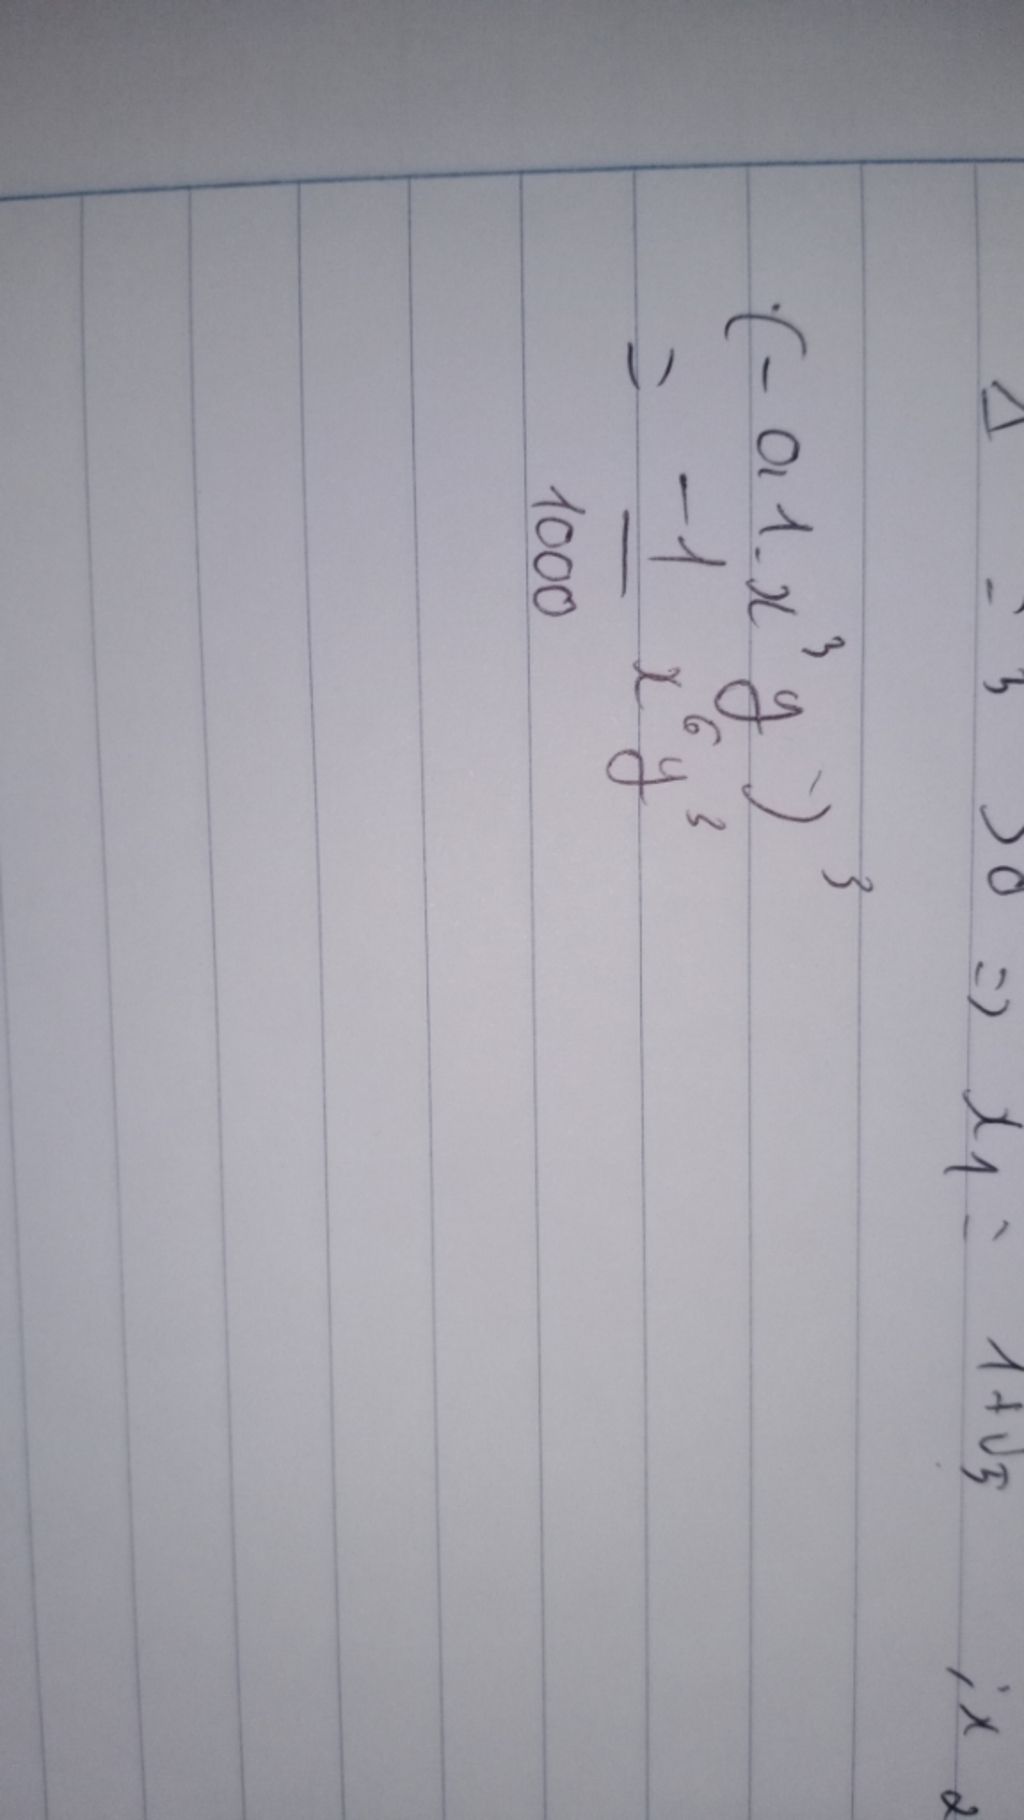 Δ = 3 > 0 => x1 = 1+√3 ; x2
(-0,1.x³y)³
= -1/1000 x⁶y³